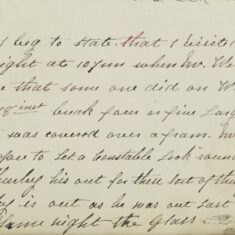 I beg to state that I visited
night at 10 pm when Mr. We
e that some one did on W
August break four or five larg
was covered over again. Mr.
to let a Constable look roun
his out for there sort of thi
is out as he was out last
same night the Glass